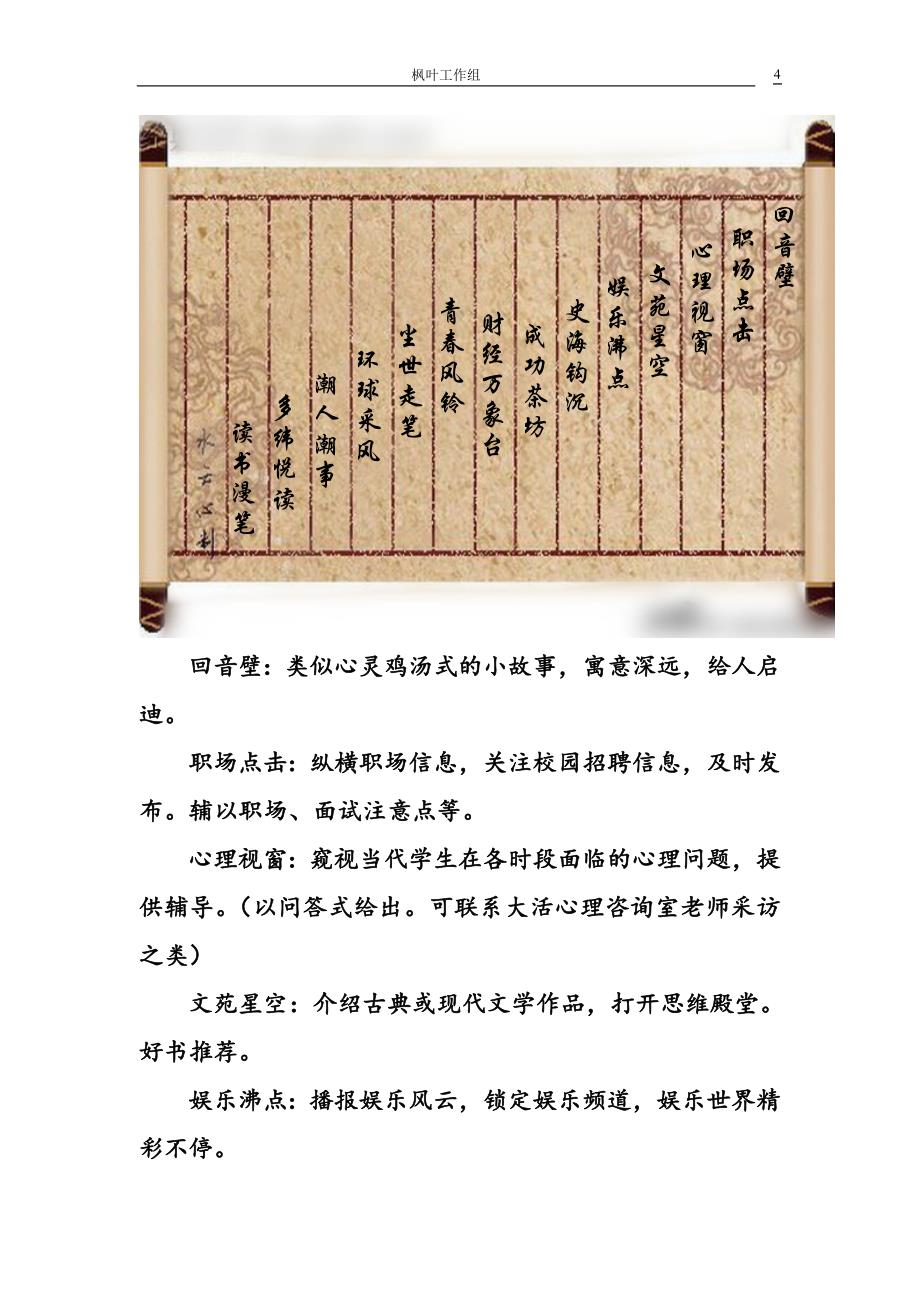 枫叶工作组 4
回音壁
职场点击
心理视窗
文苑星空
娱乐沸点
史海钩沉
成功茶坊
财经万象台
青春风铃
尘世走笔
环球采风
潮人潮事
多纬悦读
读书漫笔
水云心制
回音壁：类似心灵鸡汤式的小故事，寓意深远，给人启
迪。
职场点击：纵横职场信息，关注校园招聘信息，及时发
布。辅以职场、面试注意点等。
心理视窗：窥视当代学生在各时段面临的心理问题，提
供辅导。（以问答式给出。可联系大活心理咨询室老师采访
之类）
文苑星空：介绍古典或现代文学作品，打开思维殿堂。
好书推荐。
娱乐沸点：播报娱乐风云，锁定娱乐频道，娱乐世界精
彩不停。